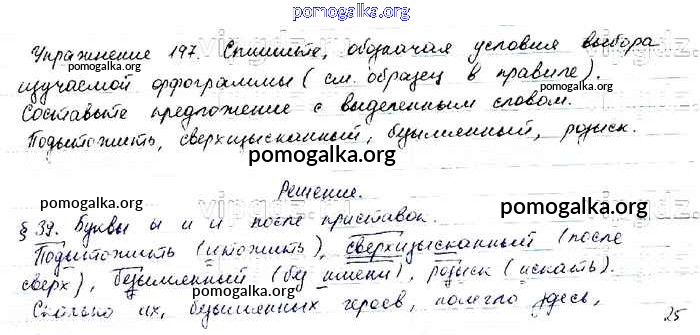 pomogalka.org
Упражнение 197. Спишите, обозначая условия выбора
изучаемой орфограммы (см. образец в правиле).
pomogalka.org
Составьте предложение с выделенным словом.
Подытожить, сверхизысканный, безымянный, розыск.
pomogalka.org
Решение.
pomogalka.org
§ 39. Буквы ы и и после приставок.
Подытожить (итожить), сверхизысканный (после
сверх), безымянный (без имени), розыск (искать).
pomogalka.org
Сколько их, безымянных героев, полегло здесь,
25